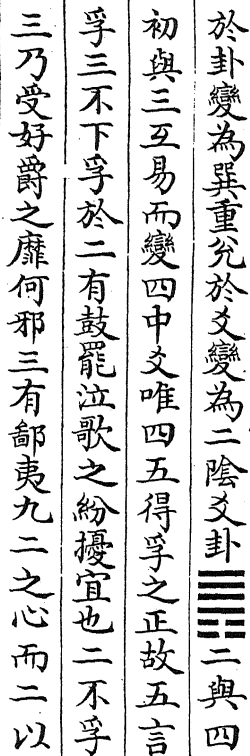 於卦變為巽重兊於爻變為二陰爻卦䷠二與四
初與三互易而變四中爻唯四五得孚之正故五言
孚三不下孚於二有鼓罷泣歌之紛擾宜也二不孚
三乃受好爵之靡何邪三有鄙夷九二之心而二以